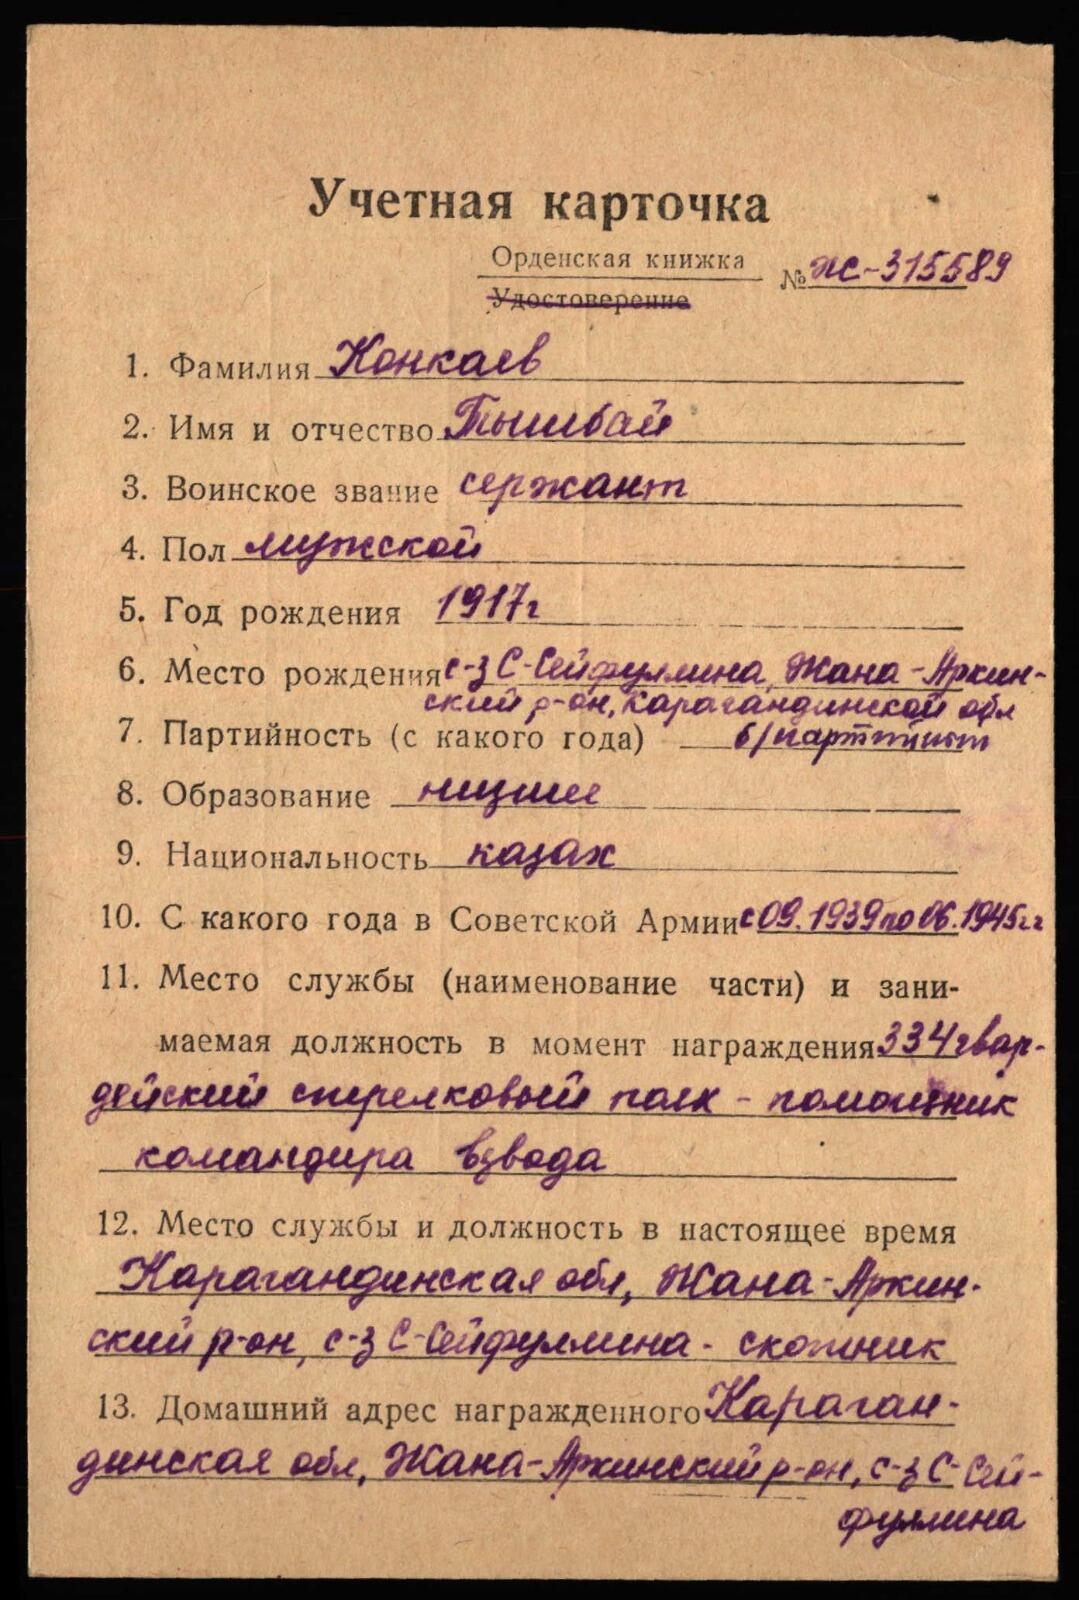 Учетная карточка
Орденская книжка
Удостоверение
№ Ж-315589
1. Фамилия Конкаев
2. Имя и отчество Тышбай
3. Воинское звание сержант
4. Пол мужской
5. Год рождения 1917г
6. Место рождения с-з С-Сейфуллина, Жана-Аркин-
ский р-он, Карагандинской обл
7. Партийность (с какого года) б/партийност
8. Образование низшее
9. Национальность казах
10. С какого года в Советской Армии с 09.1939 по 06.1945гг
11. Место службы (наименование части) и зани-
маемая должность в момент награждения 334 гвар-
дейский стрелковый полк - помощник
командира взвода
12. Место службы и должность в настоящее время
Карагандинская обл, Жана-Аркин-
ский р-он, с-з С-Сейфуллина - скотник
13. Домашний адрес награжденного Караган-
динская обл, Жана-Аркинский р-он, с-з С-Сей-
фуллина